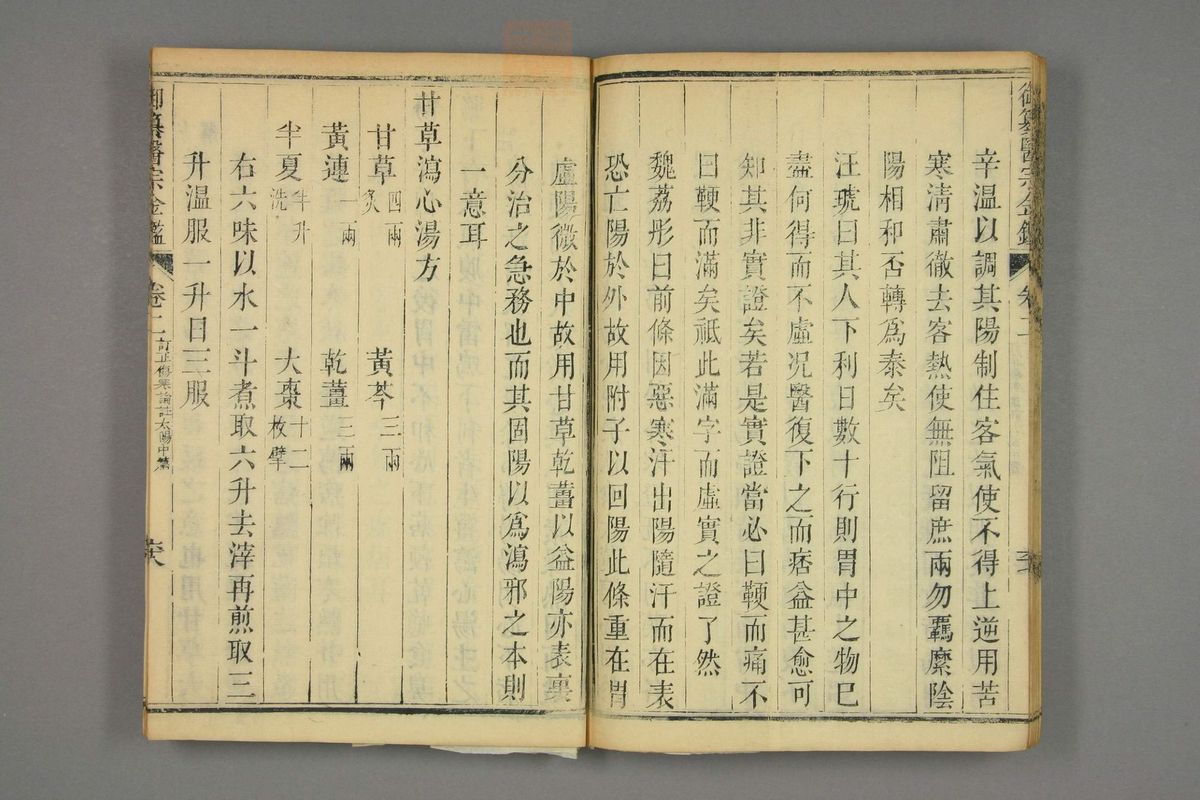 御纂醫宗金鑑
卷二
辛溫以調其陽制住客氣使不得上逆用苦
寒淸肅徹去客熱使無阻留庶兩勿覊縻陰
陽相和否轉爲泰矣
汪琥曰其人下利日數十行則胃中之物已
盡何得而不虛况醫復下之而痞益甚愈可
知其非實證矣若是實證當必曰鞕而痛不
曰鞕而滿矣祗此滿字而虛實之證了然
魏荔彤曰前條因惡寒汗出陽隨汗而在表
恐亡陽於外故用附子以回陽此條重在胃
虛陽微於中故用甘草乾薑以益陽亦表裏
分治之急務也而其固陽以爲瀉邪之本則
一意耳
甘草瀉心湯方
甘草四兩炙 黃芩三兩
黃連一兩 乾薑三兩
半夏半升洗 大棗十二枚擘
右六味以水一斗煮取六升去滓再煎取三
升溫服一升日三服
御纂醫宗金鑑
卷二 訂正傷寒論註太陽中篇